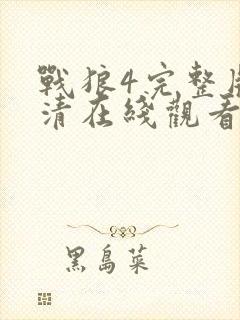 戰狼4完整
清在綫觀看
黑島菜